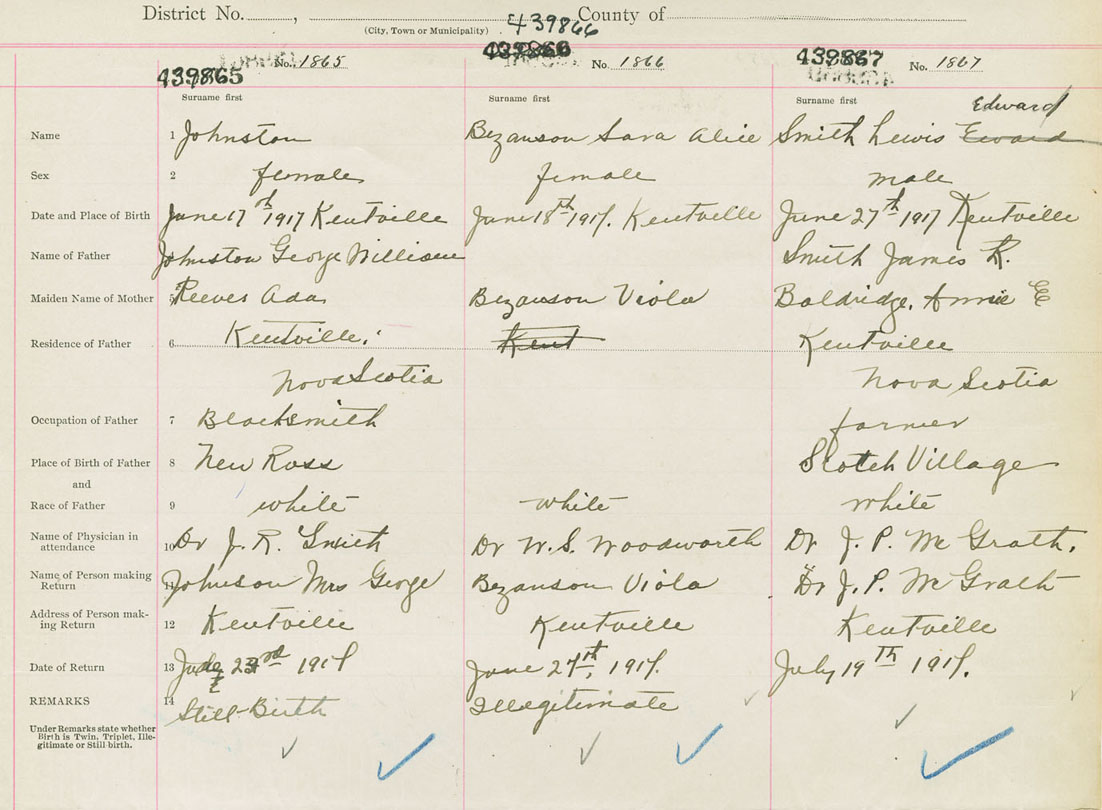 District No. , County of
(City, Town or Municipality) 439866
439865 No. 1865 439866 No. 1866 439867 No. 1867
Surname first Surname first Surname first
Edward
Name 1 Johnston Bezanson Sara Alice Smith Lewis Eward
Sex 2 female female male
Date and Place of Birth June 17th 1917 Kentville June 18th 1917. Kentville June 27th 1917 Kentville
Name of Father Johnston George William Smith James R.
Maiden Name of Mother 5 Reeves Ada Bezanson Viola Baldridge, Annie E
Residence of Father 6 Kentville, Kent Kentville
Nova Scotia Nova Scotia
Occupation of Father 7 Blacksmith farmer
Place of Birth of Father 8 New Ross Scotch Village
and
Race of Father 9 white white white
Name of Physician in
attendance 10 Dr J. R. Smith Dr W. S. Woodworth Dr J. P. McGrath.
Name of Person making
Return 11 Johnson Mrs George Bezanson Viola Dr J. P. McGrath
Address of Person mak-
ing Return 12 Kentville Kentville Kentville
Date of Return 13 23rd 1917 June 27th, 1917. July 19th 1917.
REMARKS 14 Still-Birth Illegitimate
Under Remarks state whether
Birth is Twin, Triplet, Ille-
gitimate or Still-birth.